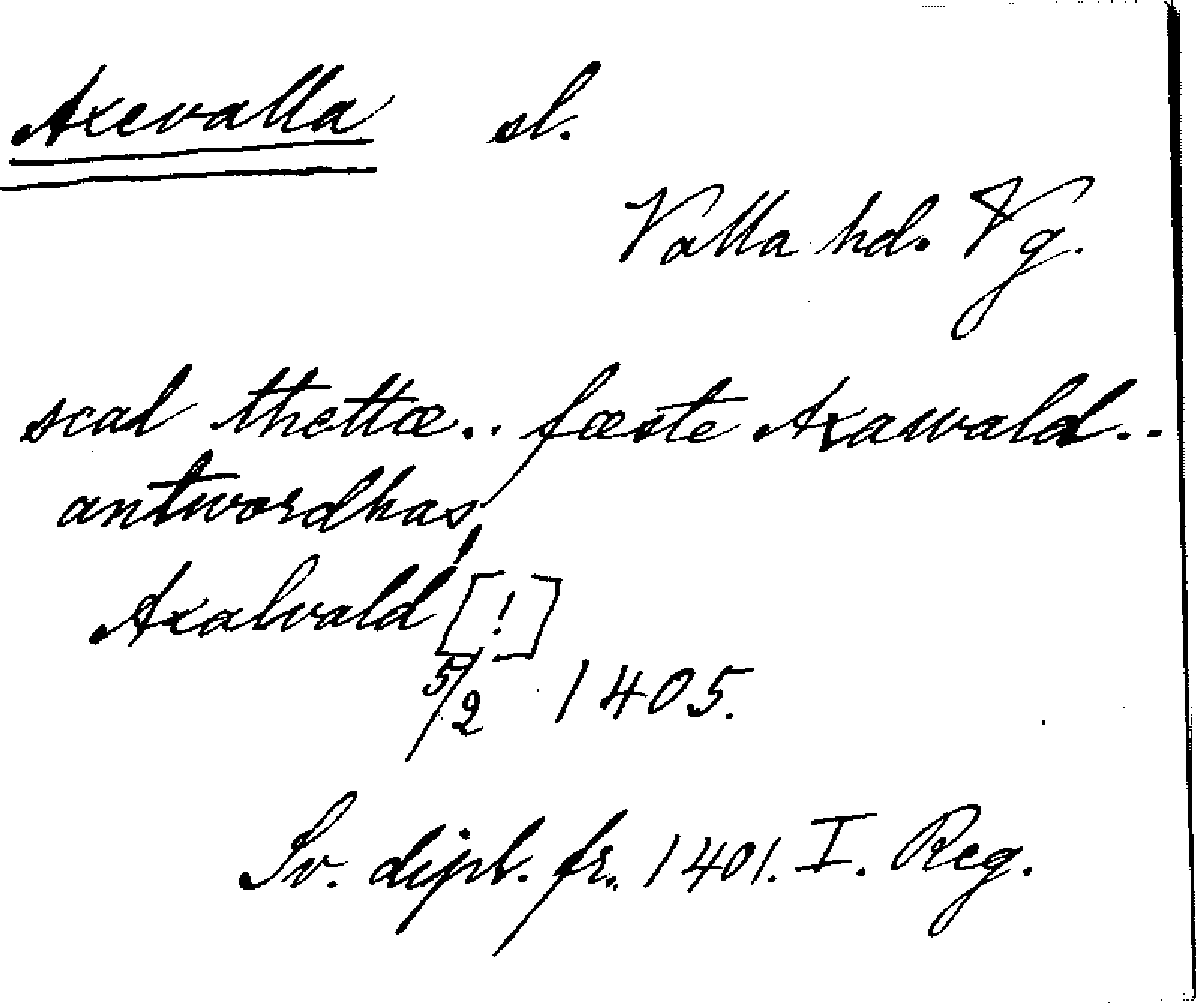 Axevalla sl.
Valla hd. Vg.
scal thettæ.. fæste Axawald..
antwordhas,
Axalvald [!]
5/2 1405.
Sv. dipl. fr. 1401. I. Reg.